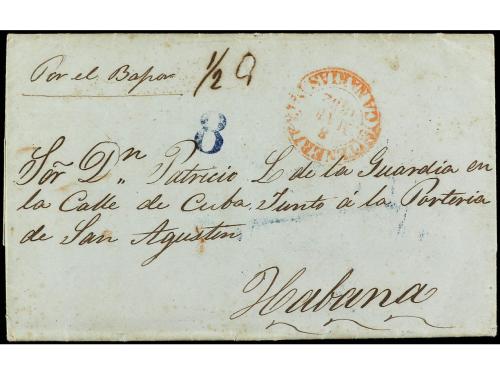 Por el Bapor
1/2
8
CANARIAS
Sor. Dn. Patricio L. de la Guardia en
la Calle de Cuba, Junto a la Porteria
de San Agustin
Habana